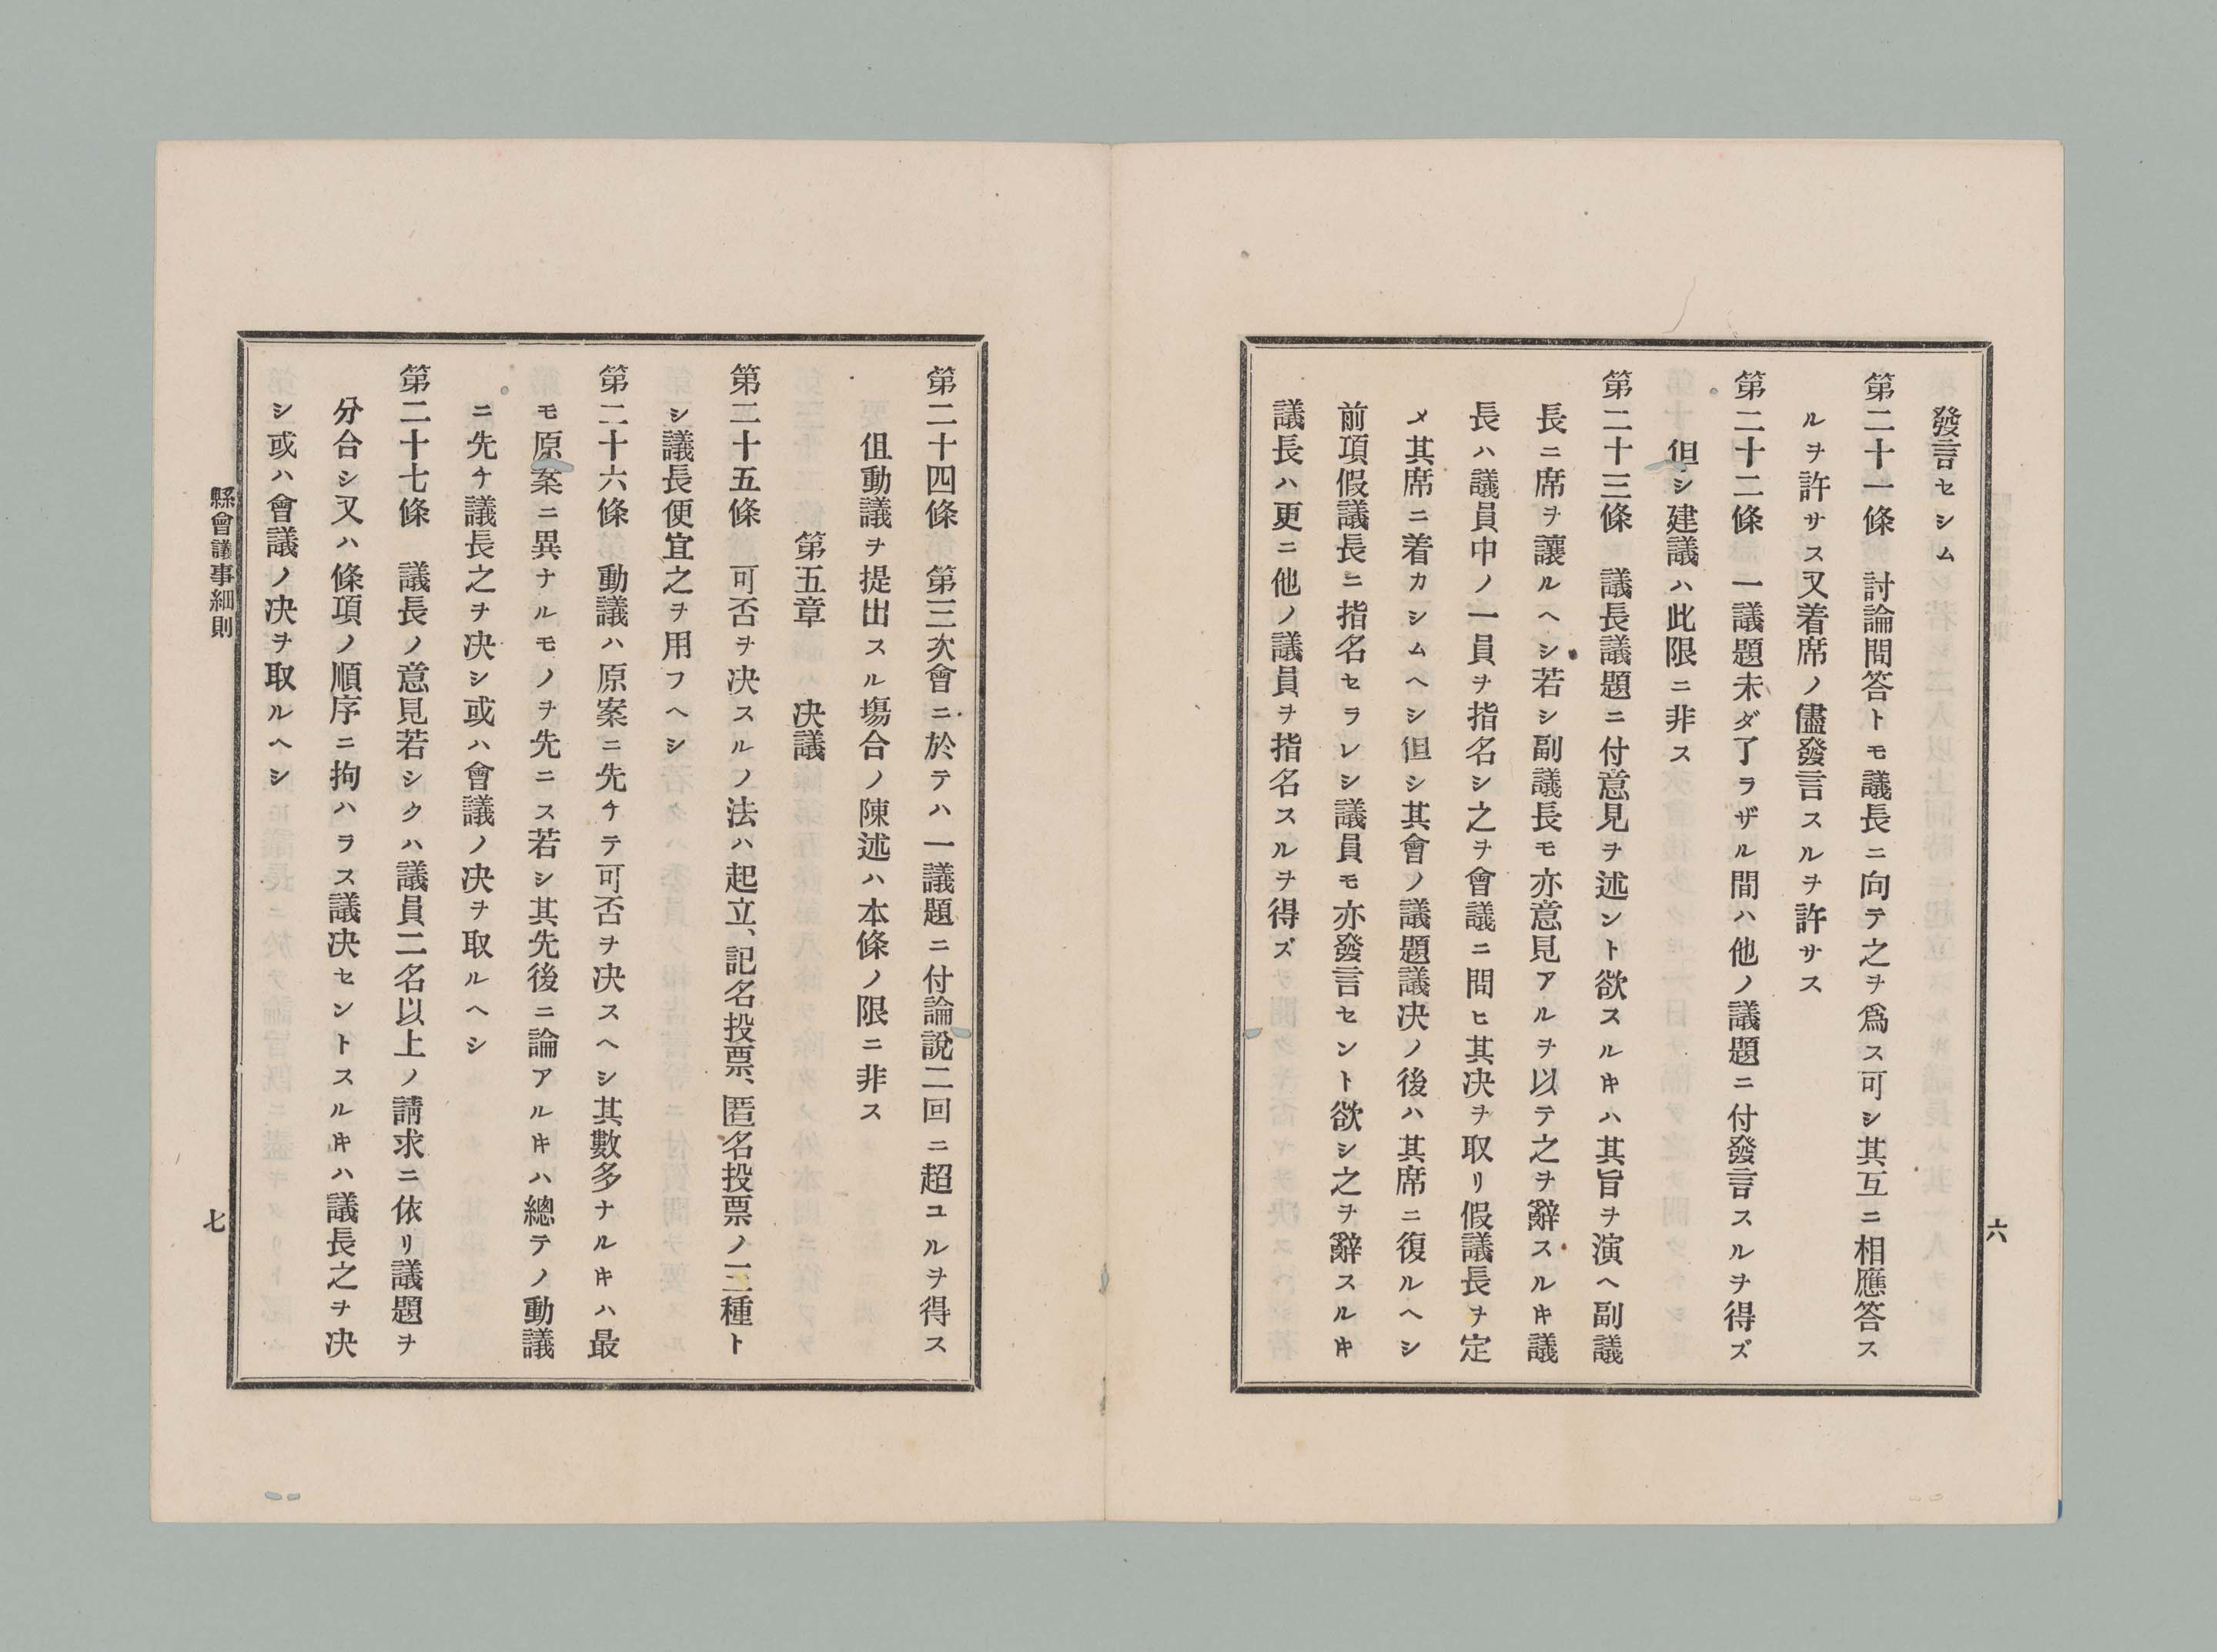 發言セシム
第二十一條　討論問答トモ議長ニ向テ之ヲ爲ス可シ其互ニ相應答ス
ルヲ許サス又着席ノ儘發言スルヲ許サス
第二十二條　一議題未ダ了ラザル間ハ他ノ議題ニ付發言スルヲ得ズ
但シ建議ハ此限ニ非ス
第二十三條　議長議題ニ付意見ヲ述ント欲スルキハ其旨ヲ演ヘ副議
長ニ席ヲ讓ルヘシ若シ副議長モ亦意見アルヲ以テ之ヲ辭スルキ議
長ハ議員中ノ一員ヲ指名シ之ヲ會議ニ問ヒ其决ヲ取リ假議長ヲ定
メ其席ニ着カシムヘシ但シ其會ノ議題議决ノ後ハ其席ニ復ルヘシ
前項假議長ニ指名セラレシ議員モ亦發言セント欲シ之ヲ辭スルキ
議長ハ更ニ他ノ議員ヲ指名スルヲ得ズ
六
第二十四條　第三次會ニ於テハ一議題ニ付論說二回ニ超ユルヲ得ス
伹動議ヲ提出スル塲合ノ陳述ハ本條ノ限ニ非ス
第五章　决議
第二十五條　可否ヲ决スルノ法ハ起立、記名投票、匿名投票ノ三種ト
シ議長便宜之ヲ用フヘシ
第二十六條　動議ハ原案ニ先チテ可否ヲ决スヘシ其數多ナルキハ最
モ原案ニ異ナルモノヲ先ニス若シ其先後ニ論アルキハ總テノ動議
ニ先チ議長之ヲ决シ或ハ會議ノ决ヲ取ルヘシ
第二十七條　議長ノ意見若シクハ議員二名以上ノ請求ニ依リ議題ヲ
分合シ又ハ條項ノ順序ニ拘ハラス議决セントスルキハ議長之ヲ决
シ或ハ會議ノ决ヲ取ルヘシ
縣會議事細則
七